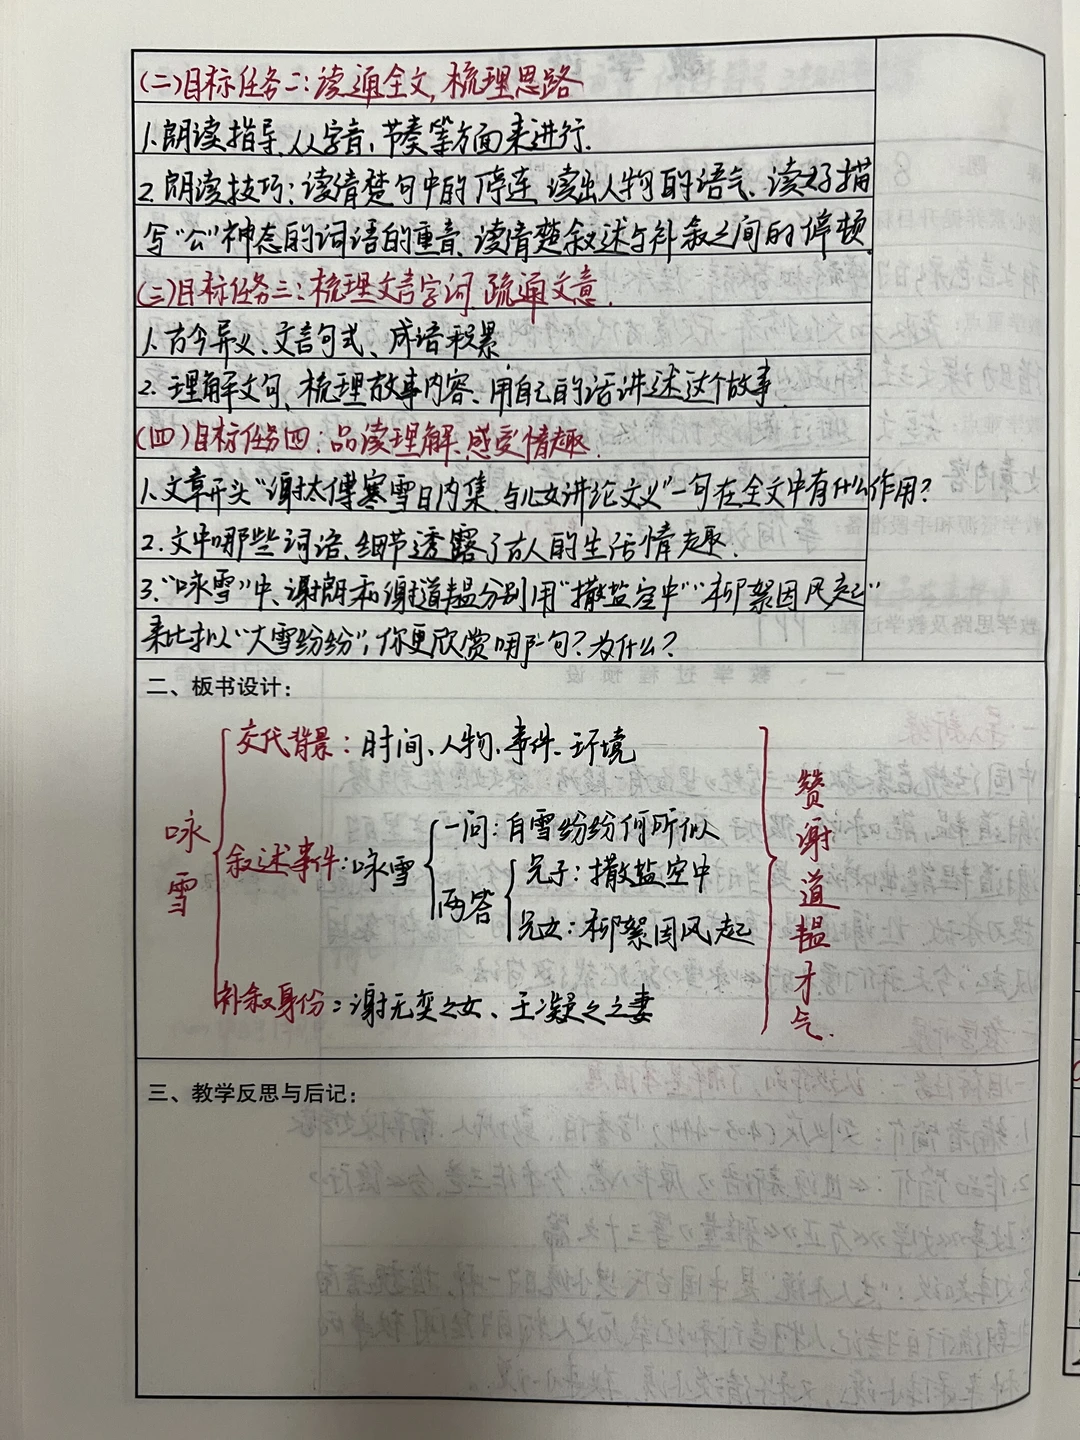 (二)目标任务二:读通全文,梳理思路
1.朗读指导、从字音、节奏等方面来进行.
2.朗读技巧:读清楚句中的停连、读出人物的语气、读好描
写“公”神态的词语的重音、读清楚叙述与补叙之间的停顿
(三)目标任务三:梳理文言字词、疏通文意.
1.古今异义、文言句式、成语积累
2.理解文句、梳理故事内容、用自己的话讲述这个故事.
(四)目标任务四:品读理解、感受情趣.
1.文章开头“谢太傅寒雪日内集,与儿女讲论文义”一句在全文中有什么作用?
2.文中哪些词语、细节透露了古人的生活情趣.
3.“咏雪”中、谢朗和谢道韫分别用“撒盐空中”“柳絮因风起”
来比拟“大雪纷纷”,你更欣赏哪一句?为什么?
二、板书设计:
咏雪
交代背景:时间、人物、事件、环境
叙述事件:咏雪
一问:白雪纷纷何所似
两答
兄子:撒盐空中
兄女:柳絮因风起
补叙身份:谢无奕之女、王凝之之妻
赞谢道韫才气.
三、教学反思与后记: